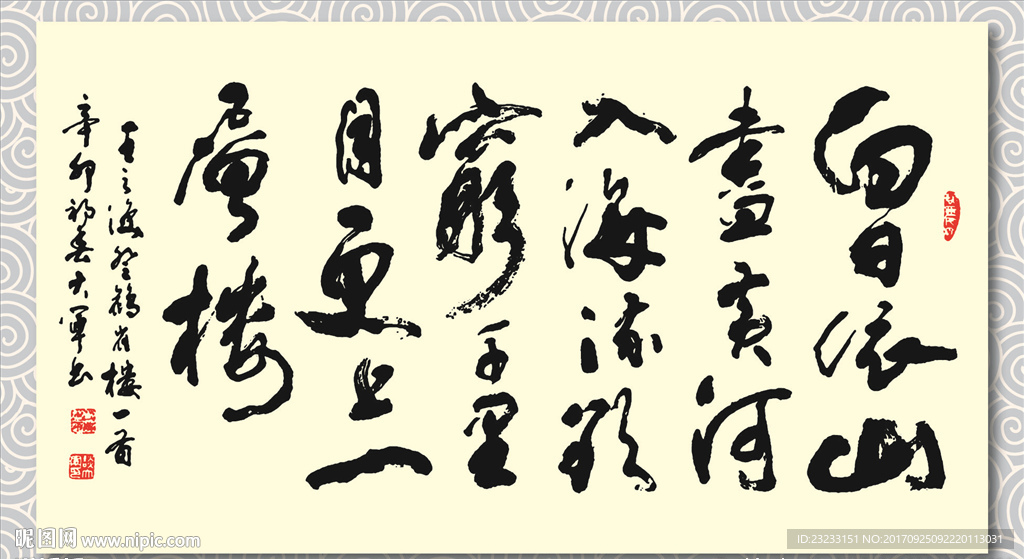 白日依山
盡黄河
入海流欲
窮千里
目更上一
層樓
王之渙登鸛雀樓一首
辛卯初春大軍书
昵图网 www.nipic.com
ID:23233151 NO:20170925092220113031